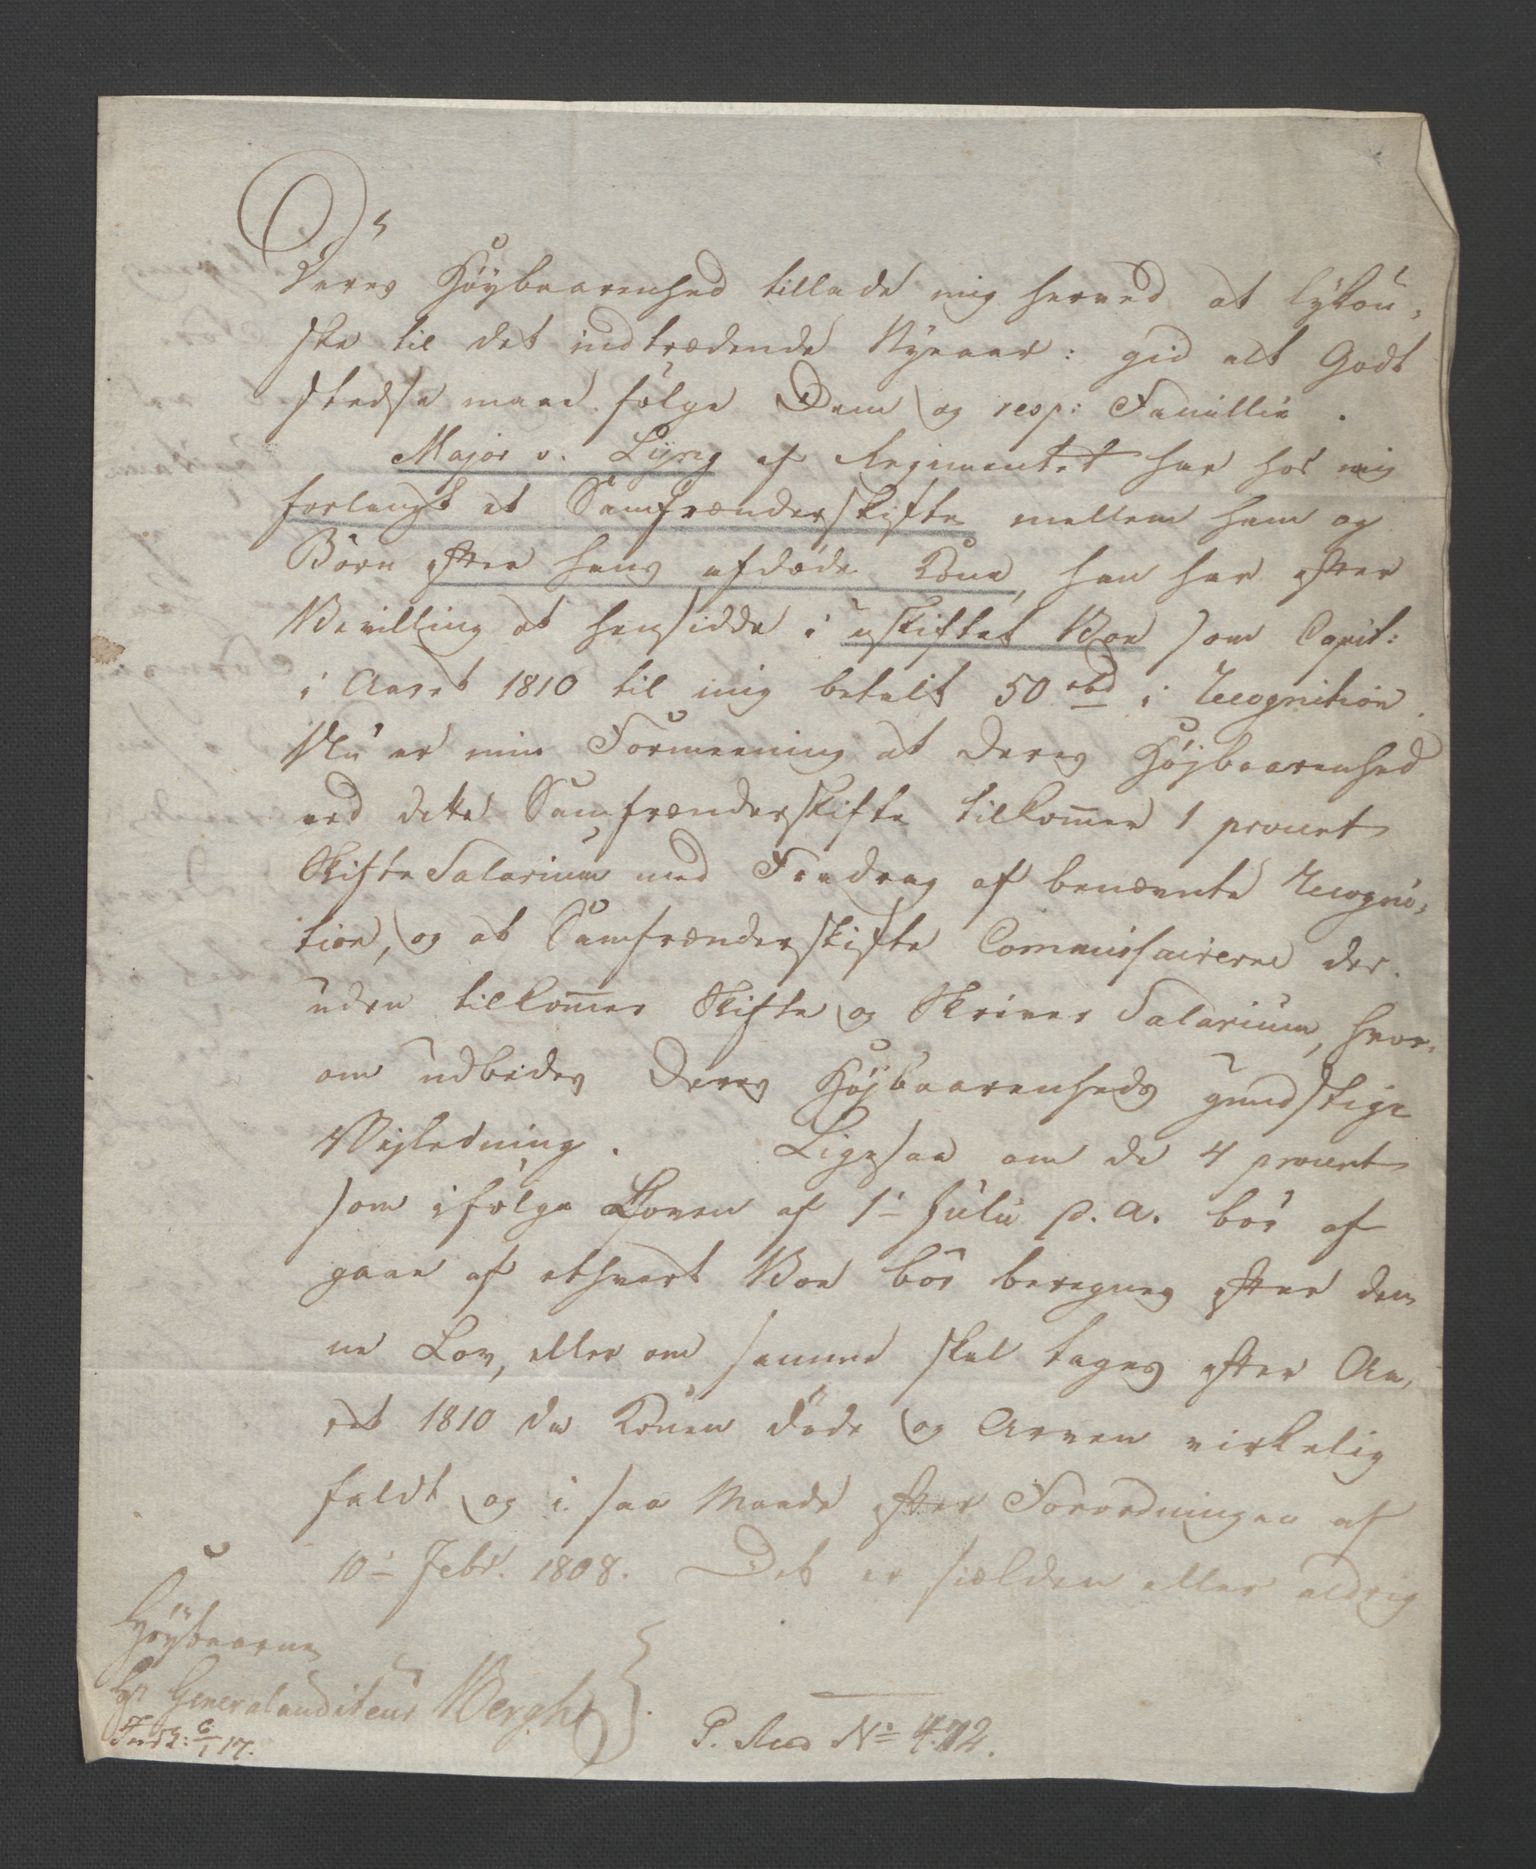 Deres Høybaarenhed tillade mig herved at lykøn-
ske til det indtrædende Nyeaar: gid alt Godt
stedse maae følge Dem og resp: Famillie.
Major v. Lyng af Regimentet har hos mig
forlangt et Samfrænderskifte mellem ham og
Børn efter hans afdøde Kone, han har efter
Bevilling at hensidde i uskiftet Boe som Capit:
i Aaret 1810 til mig betalt 50 rbd i Recognition.
Nu er min Formeening at Deres Høybaarenhed
ved dette Samfrænderskifte tilkom̅er 1 procent
Skifte Salarium med Fradrag af benævnte Recogni-
tion, og at Samfrænderskifte Commissairerne der-
uden tilkom̅er Skifte og Skriver Salarium, hvor-
om udbedes Deres Høybaarenheds gundstige
Vejledning. Ligesaa om de 4 procent
som ifølge Loven af 1ᵗᵉ Julii p. a. bør af
gaae af ethvert Boe bør beregnes efter den
ne Lov, eller om samme skal tages efter Aa-
ret 1810 da Konen døde og Arven virkelig
faldt og i saa Maade efter Forordningen af
10ᵈᵉ Febr. 1808. Det er sielden eller aldrig
Høybaarne
Hr Generalauditeur Bergh
Indk: 6/1 17.
P. Aud Nº 472.